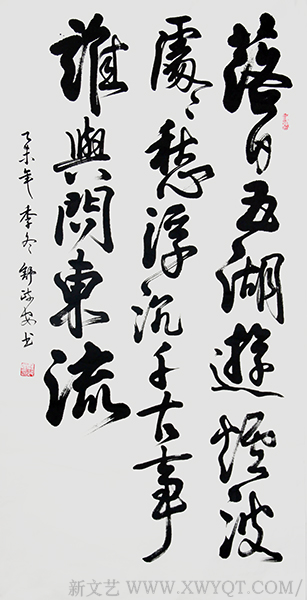 落日五湖遊煙波
處〻愁浮沉千古事
誰與問東流
乙未年季冬舒书
新文艺 WWW.XWYQT.COM/